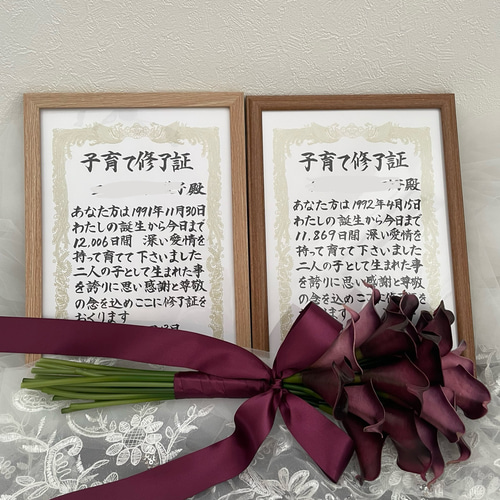 子育て修了証
殿
あなた方は1991年11月30日
わたしの誕生から今日まで
12,006日間 深い愛情を
持って育てて下さいました
二人の子として生まれた事
を誇りに思い感謝と尊敬
の念を込めここに修了証を
おくります
子育て修了証
殿
あなた方は1992年4月15日
わたしの誕生から今日まで
11,869日間 深い愛情を
持って育てて下さいました
二人の子として生まれた事
を誇りに思い感謝と尊敬
の念を込めここに修了証を
おくります